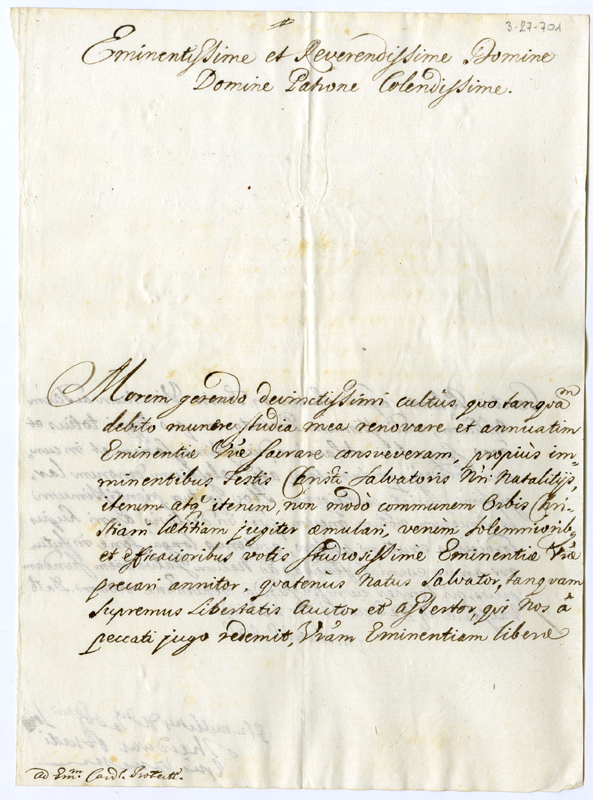 3-27-701
Eminentissime et Reverendissime Domine
Domine Patrone Colendissime.
Morem gerendo devinctissimi cultûs, quo tanquā
debito munere studia mea renovare et annuatim
Eminentiæ Vræ sacrare consveveram, propius im=
minentibus Festis Christi Salvatoris Nri Natalitijs,
iterum atq iterum, non modò communem Orbis Chri=
stiani lætitiam jugiter æmulari, verùm solemniorib9
et efficacioribus votis studiosissime Eminentiæ Vræ
precari annitor, quatenus Natus Salvator, tanquam
Supremus Libertatis Auctor et Assertor, qui nos à
peccati jugo redemit, Vram Eminentiam liberè
ad Emm. Cardl. Protect.